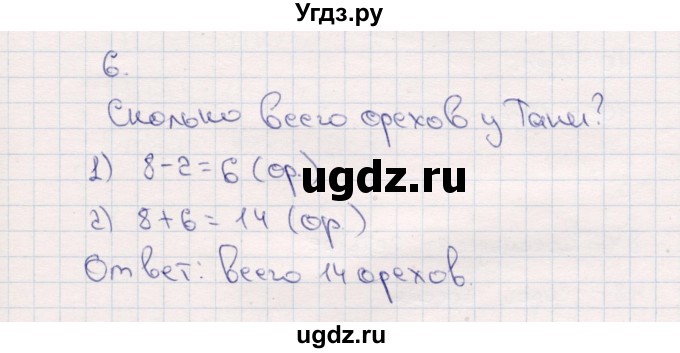 Угдз.ру
gdz.ru
6.
Сколько всего орехов у Тани?
1) 8-2=6 (ор.)
ugdz.ru
2) 8+6=14 (ор.)
Ответ: всего 14 орехов.
ugdz.ru